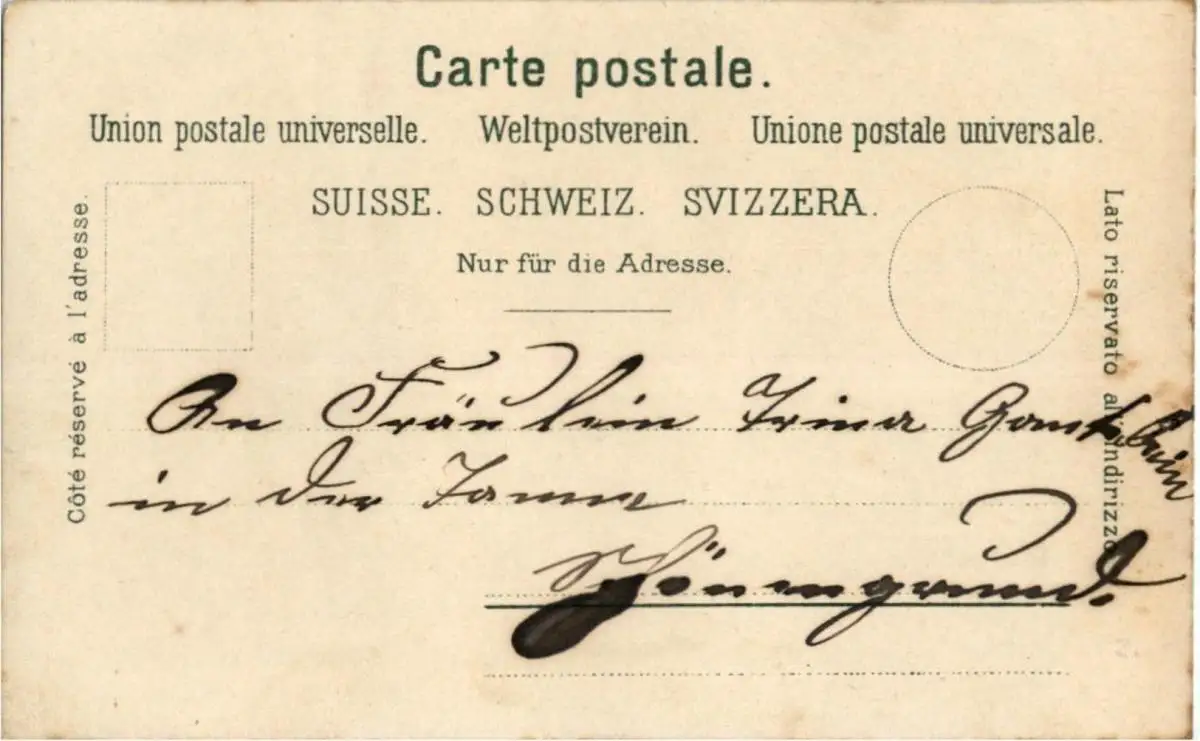 Carte postale.
Union postale universelle. Weltpostverein. Unione postale universale.
SUISSE. SCHWEIZ. SVIZZERA.
Nur für die Adresse.
Côté réservé à l'adresse.
Lato riservato all'indirizzo
An Fräulein Trina Gantenbein
in der Tanne
Schönengrund.